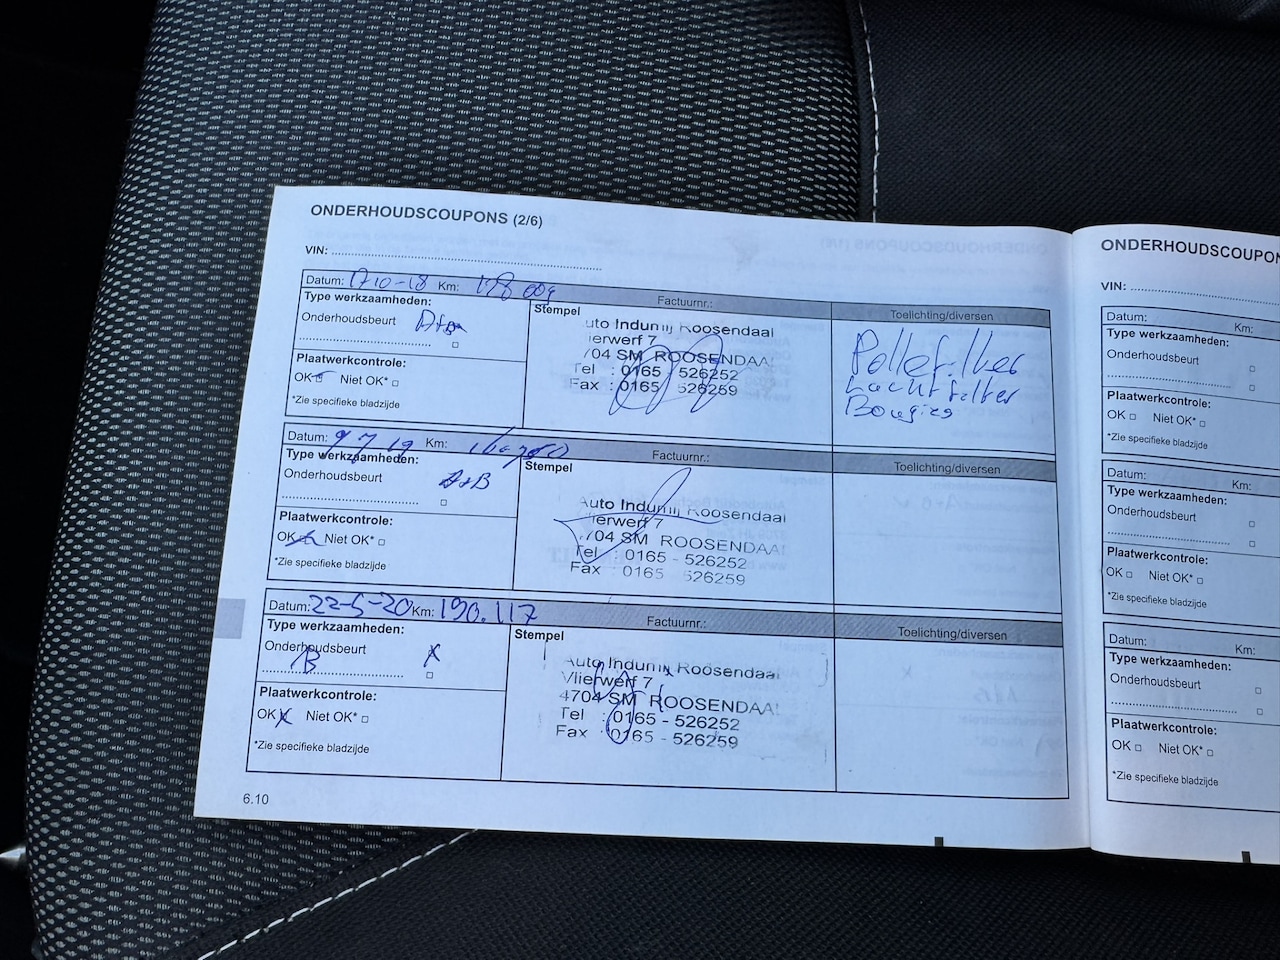 ONDERHOUDSCOUPONS (2/6)
VIN:
Datum: 1710-18 Km: Factuurnr.:
Type werkzaamheden: Stempel Toelichting/diversen
Onderhoudsbeurt
Auto Indumij Roosendaal
Vlierwerf 7
4704 SM ROOSENDAAL
Tel : 0165 526252
Fax : 0165 526259
Pollefilter
Luchtfilter
Bougies
Plaatwerkcontrole:
OK Niet OK*
*Zie specifieke bladzijde
Datum: 9 7 19 Km: Factuurnr.:
Type werkzaamheden: Stempel Toelichting/diversen
Onderhoudsbeurt A+B
Auto Indumij Roosendaal
Vlierwerf 7
4704 SM ROOSENDAAL
Tel : 0165 - 526252
Fax : 0165 526259
Plaatwerkcontrole:
OK Niet OK*
*Zie specifieke bladzijde
Datum: 22-5-20 Km: 190.117 Factuurnr.:
Type werkzaamheden: Stempel Toelichting/diversen
Onderhoudsbeurt X
B
Auto Indumij Roosendaal
Vlierwerf 7
4704 SM ROOSENDAAL
Tel : 0165 - 526252
Fax : 0165 - 526259
Plaatwerkcontrole:
OK X Niet OK*
*Zie specifieke bladzijde
6.10
ONDERHOUDSCOUPON
VIN:
Datum: Km:
Type werkzaamheden:
Onderhoudsbeurt
Plaatwerkcontrole:
OK Niet OK*
*Zie specifieke bladzijde
Datum: Km:
Type werkzaamheden:
Onderhoudsbeurt
Plaatwerkcontrole:
OK Niet OK*
*Zie specifieke bladzijde
Datum: Km:
Type werkzaamheden:
Onderhoudsbeurt
Plaatwerkcontrole:
OK Niet OK*
*Zie specifieke bladzijde